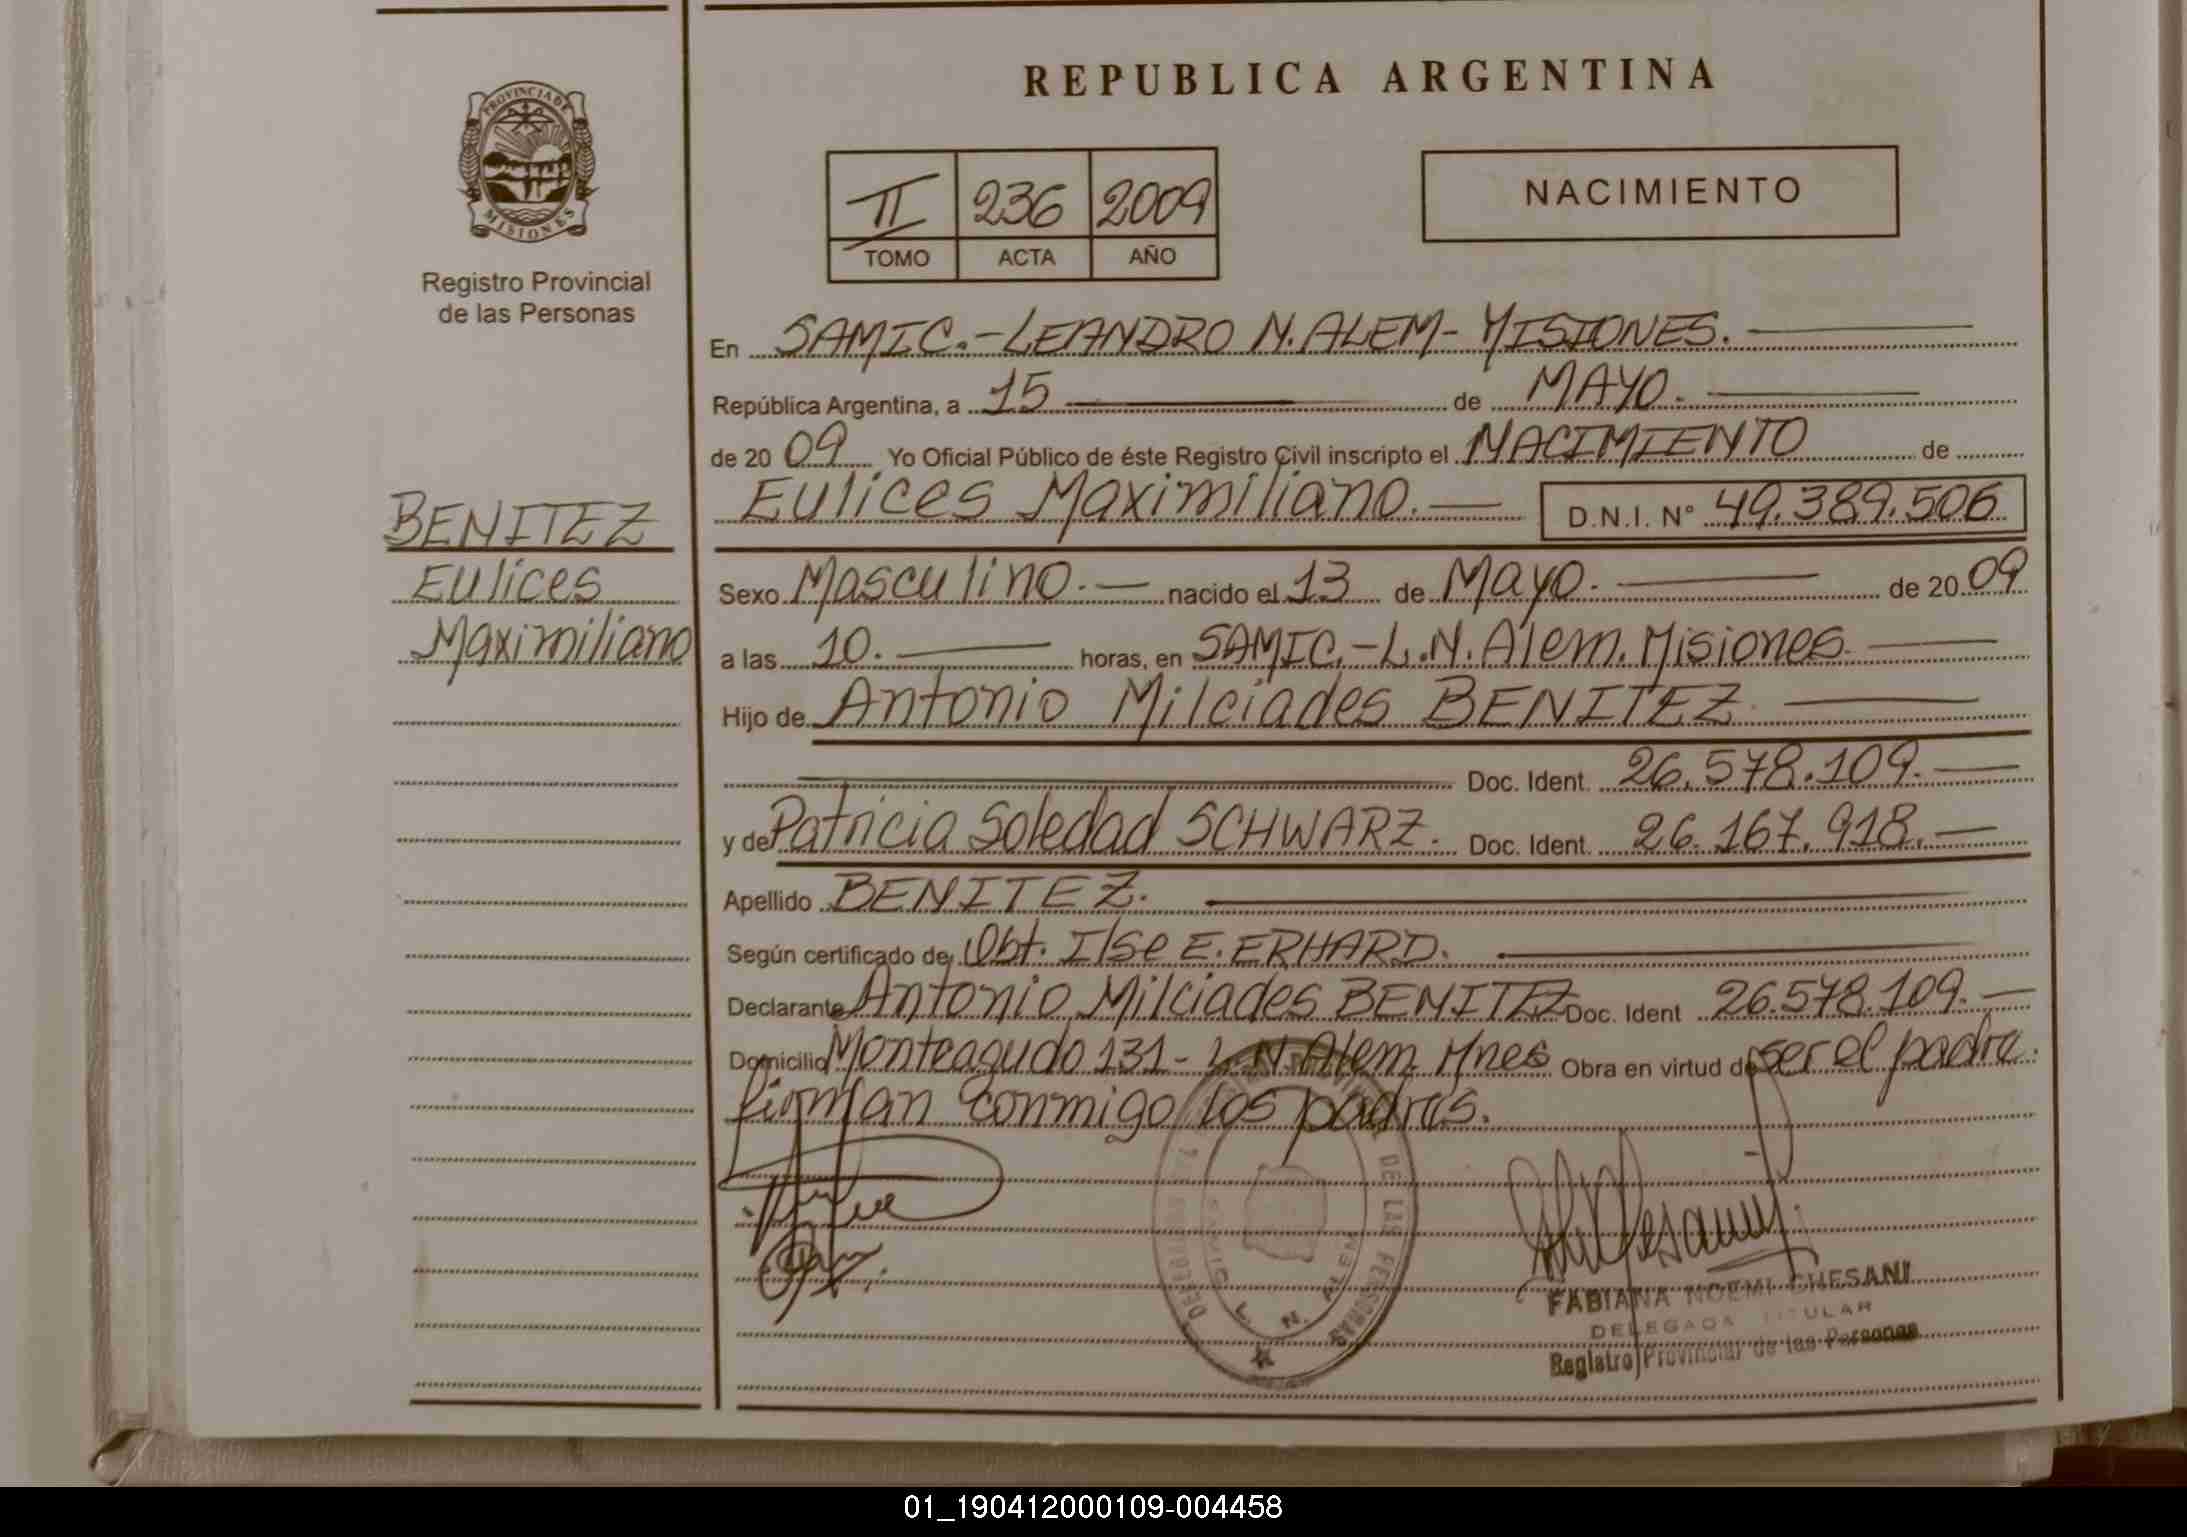 REPUBLICA ARGENTINA
PROVINCIA DE
MISIONES
Registro Provincial
de las Personas
II 236 2009
TOMO ACTA AÑO
NACIMIENTO
En SAMIC.-LEANDRO N. ALEM- MISIONES.
República Argentina, a 15 de MAYO.
de 2009 Yo Oficial Público de éste Registro Civil inscripto el NACIMIENTO de
Eulices Maximiliano. D.N.I. Nº 49.389.506
BENITEZ
Eulices
Maximiliano
Sexo Masculino. nacido el 13 de Mayo. de 2009
a las 10. horas, en SAMIC.-L.N. Alem. Misiones.
Hijo de Antonio Milciades BENITEZ
Doc. Ident. 26.578.109.
y de Patricia Soledad SCHWARZ. Doc. Ident. 26.167.918.
Apellido BENITEZ.
Según certificado de Obt. Ilse E. ERHARD.
Declarante Antonio Milciades BENITEZ Doc. Ident 26.578.109.
Domicilio Monteagudo 131- L.N. Alem. Mnes Obra en virtud de ser el padre.
firman conmigo los padres.
DE LAS PERSONAS
L. N. ALEM
FABIANA NOEMI CHESANI
DELEGADA TITULAR
Registro Provincial de las Personas
01_190412000109-004458